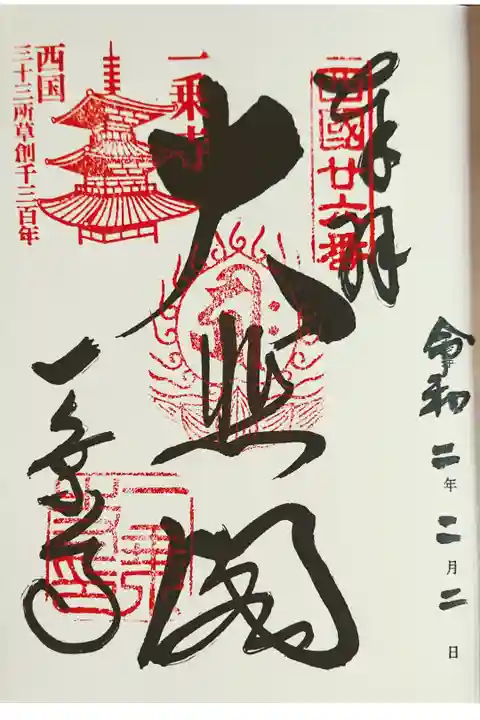 令和二年二月二日
奉拝
西國廿六番
大悲閣
一乗寺
西国
三十三所草創千三百年
一乗寺